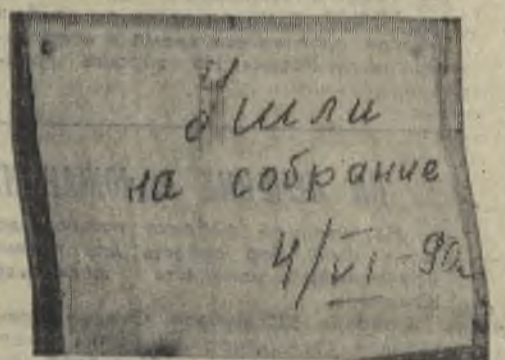 Ушли
на собрание
4/VI-90г.